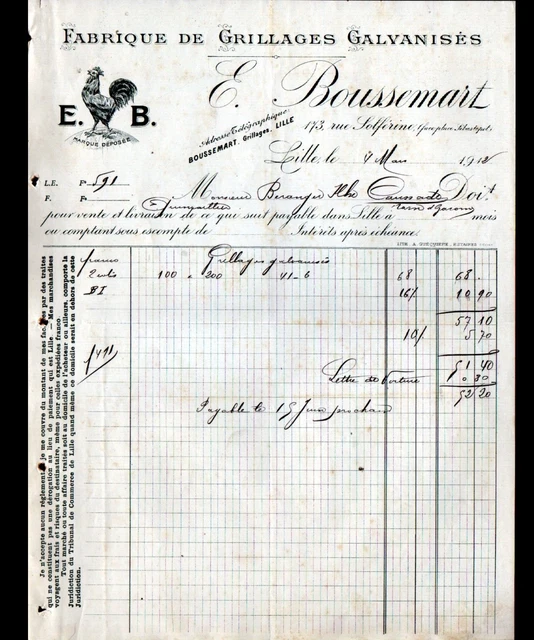 FABRIQUE DE GRILLAGES GALVANISÉS
E. Boussemart
E. B.
MARQUE DÉPOSÉE
Adresse Télégraphique
BOUSSEMART. Grillages. LILLE
173, rue Solférino, (près place Sébastopol)
Lille, le 4 Mars 1912
L.E. F° 591
F. F°
Monsieur Beranger Caussade Doit
Tarn & Garonne
pour vente et livraison de ce qui suit payable dans Lille à mois
ou comptant sous escompte de Intérêts après échéance.
franco Grillages galvanisés
2 rlx 100 x 200 41-6 68 68.
BI 16% 10 90
57 10
10% 5 70
51 40
Lettre de Voiture 0.80
52 20
Payable le 15 Juin prochain
Je n'accepte aucun règlement, je me couvre du montant de mes factures par des traites
qui ne constituent pas une dérogation au lieu de paiement qui est Lille. — Mes marchandises
voyagent aux frais et risques du destinataire, même pour celles expédiées franco.
Tout marché ou toute affaire traités soit au domicile de l'acheteur ou ailleurs, comporte la
Juridiction du Tribunal de Commerce de Lille quand même ce domicile serait en dehors de cette
Juridiction.